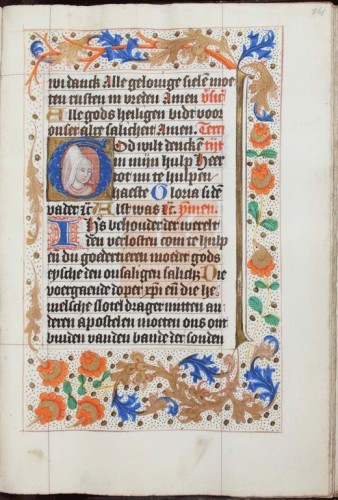 wi danck Alle gelouige sielē moe
ten rusten in vreden Amen
Alle gods heiligen bidt voor
onser alre salicheit Amen. Tert
God wilt dencken tijt
in mijn hulp Heer
tot mi te hulpen
haeste Gloria si dē
vader
Ihs behouder der werelt
den verlosten com te hulp
en du goedertieren moeder gods
eysche den onsaligen salich Die
voergaende doper xpi en die he
melsche slotel drager mitten an
deren apostelen moeten ons ont
binden vanden bande der sonden